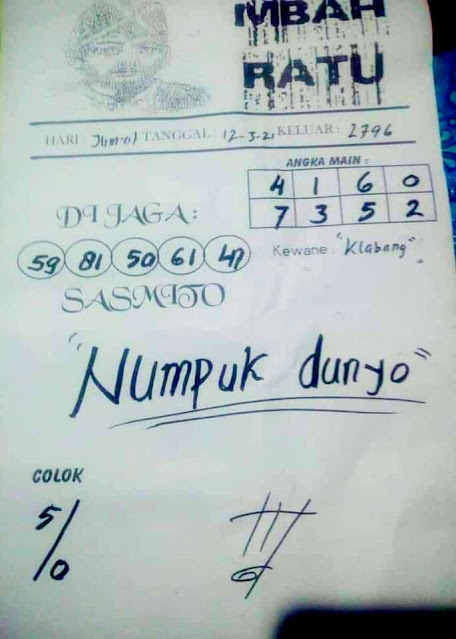 MBAH
RATU
HARI : Jum'at TANGGAL : 12-3-21 KELUAR : 2796
ANGKA MAIN :
4 1 6 0
7 3 5 2
DI JAGA :
59 81 50 61 47
Kewane : "Klabang"
SASMITO
"Numpuk dunyo"
COLOK
5/0